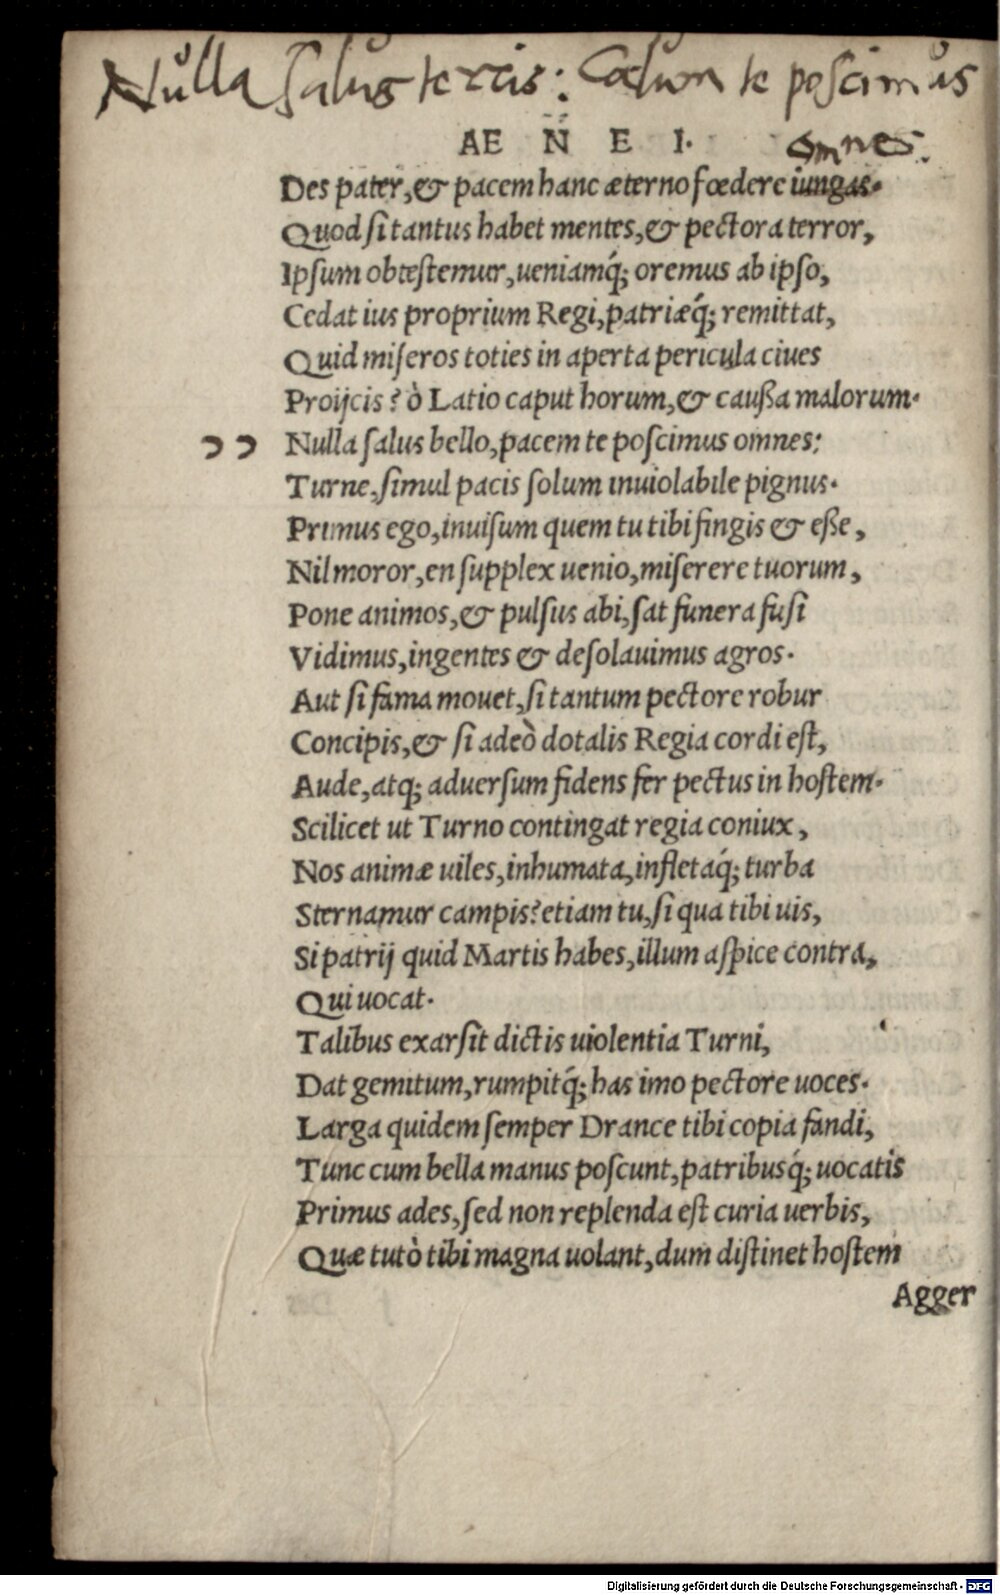 Nulla salus terris: Coelum te poscimus
omnes.
AE N E I.
Des pater, & pacem hanc æterno fœdere iungas.
Quod si tantus habet mentes, & pectora terror,
Ipsum obtestemur, ueniamq́; oremus ab ipso,
Cedat ius proprium Regi, patriæq́; remittat,
Quid miseros toties in aperta pericula ciues
Proijcis? ò Latio caput horum, & caußa malorum.
Nulla salus bello, pacem te poscimus omnes:
Turne, simul pacis solum inuiolabile pignus.
Primus ego, inuisum quem tu tibi fingis & eße,
Nil moror, en supplex uenio, miserere tuorum,
Pone animos, & pulsus abi, sat funera fusi
Vidimus, ingentes & desolauimus agros.
Aut si fama mouet, si tantum pectore robur
Concipis, & si adeò dotalis Regia cordi est,
Aude, atq; aduersum fidens fer pectus in hostem.
Scilicet ut Turno contingat regia coniux,
Nos animæ uiles, inhumata, infletaq́; turba
Sternamur campis? etiam tu, si qua tibi uis,
Si patrij quid Martis habes, illum aspice contra,
Qui uocat.
Talibus exarsit dictis uiolentia Turni,
Dat gemitum, rumpitq́; has imo pectore uoces.
Larga quidem semper Drance tibi copia fandi,
Tunc cum bella manus poscunt, patribusq́; uocatis
Primus ades, sed non replenda est curia uerbis,
Quæ tutò tibi magna uolant, dum distinet hostem
Agger
Digitalisierung gefördert durch die Deutsche Forschungsgemeinschaft - DFG